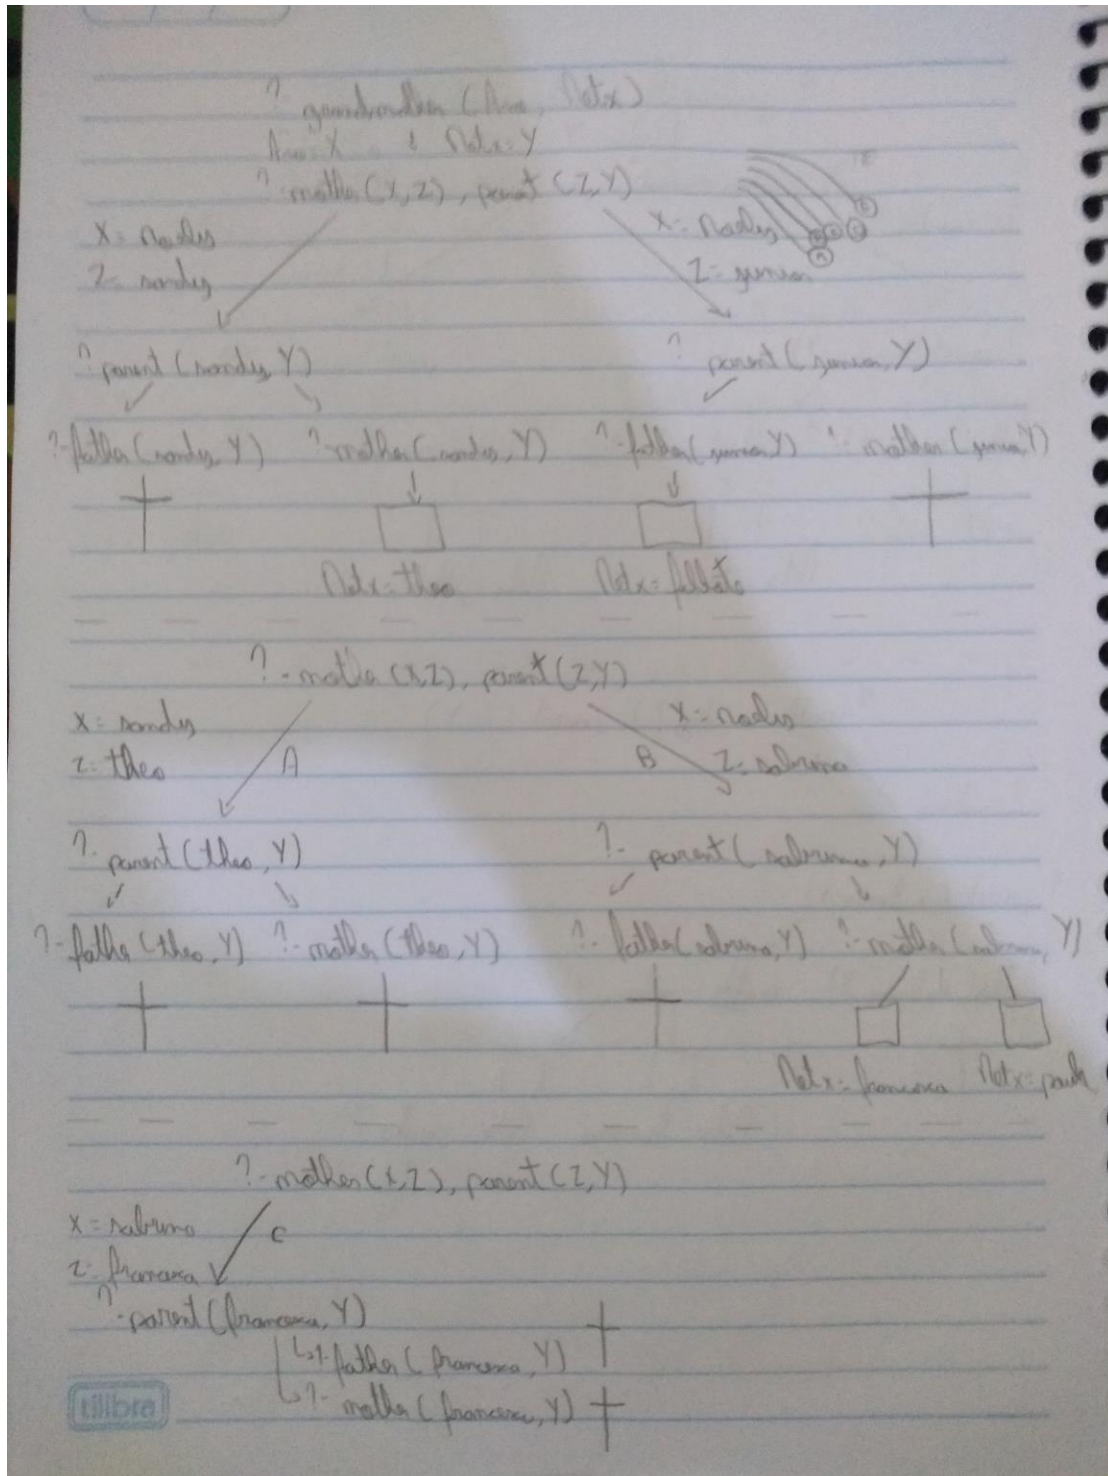 ? grandmother (Ano, Netx)
Ano=X & Netx=Y
?-mother(X,Z), parent (Z,Y)
X= nades X= nades
Z= sandy Z= junior
? parent (sandy, Y) ? parent (junior, Y)
?-father (sandy, Y) ?-mother (sandy, Y) ?-father (junior, Y) ?-mother (junior, Y)
Netx=theo Netx=
?-mother (X,Z), parent (Z,Y)
X= sandy X= nades
Z= theo A B Z= sabrina
?- parent (theo, Y) ?- parent (sabrina, Y)
?-father (theo, Y) ?-mother (theo, Y) ?-father (sabrina, Y) ?-mother (sabrina, Y)
Netx= francesca Netx=
?-mother (X,Z), parent (Z,Y)
X= sabrina C
Z= francesca
?-parent (francesca, Y)
?-father (francesca, Y)
?-mother (francesca, Y)
tilibra